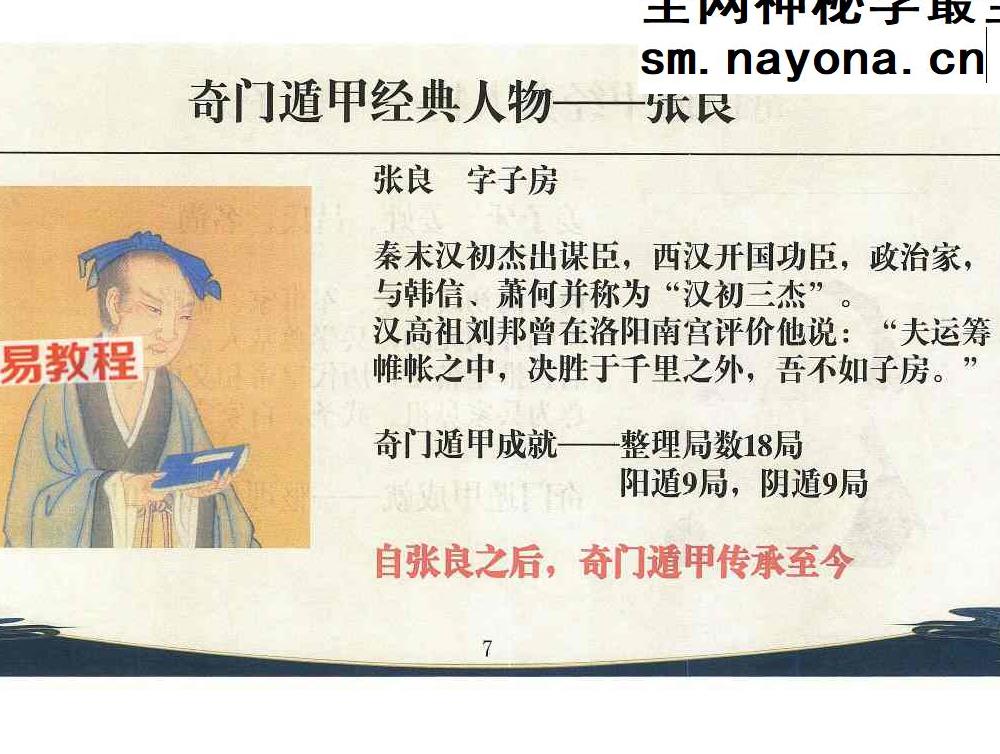 全网神秘学最全
sm.nayona.cn
奇门遁甲经典人物——张良
张良 字子房
秦末汉初杰出谋臣，西汉开国功臣，政治家，
与韩信、萧何并称为“汉初三杰”。
汉高祖刘邦曾在洛阳南宫评价他说：“夫运筹
帷帐之中，决胜于千里之外，吾不如子房。”
易教程
奇门遁甲成就——整理局数18局
阳遁9局，阴遁9局
自张良之后，奇门遁甲传承至今
7